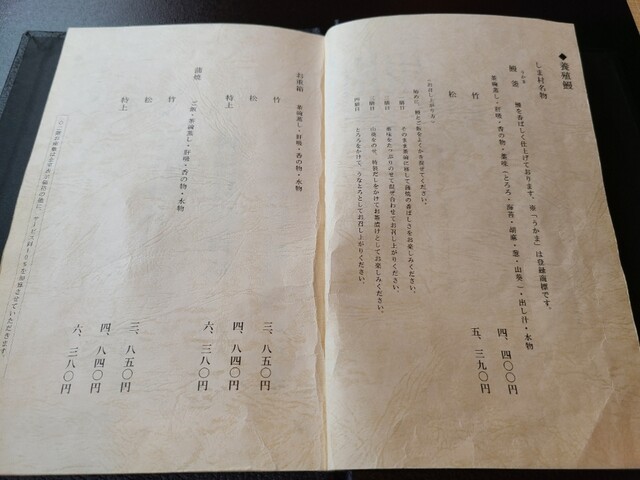 ◆養殖鰻
しま村名物
うかま
鰻釜　鰻を香ばしく仕上げております。※「うかま」は登録商標です。
茶碗蒸し・肝吸・香の物・薬味(とろろ・海苔・胡麻・葱・山葵)・出し汁・水物
竹　四、四〇〇円
松　五、三九〇円
〈お召し上がり方〉
始めに、鰻とご飯をよくかき混ぜてください。
一膳目　そのまま茶碗に移して蒲焼の香ばしさをお楽しみください。
二膳目　薬味をたっぷりのせて混ぜ合わせてお召し上がりください。
三膳目　山葵をのせ、特製だしをかけてお茶漬けとしてお楽しみください。
四膳目　とろろをかけて、うなとろとしてお召し上がりください。
お重箱　茶碗蒸し・肝吸・香の物・水物
竹　三、八五〇円
松　四、八四〇円
特上　六、三八〇円
蒲焼　ご飯・茶碗蒸し・肝吸・香の物・水物
竹　三、八五〇円
松　四、八四〇円
特上　六、三八〇円